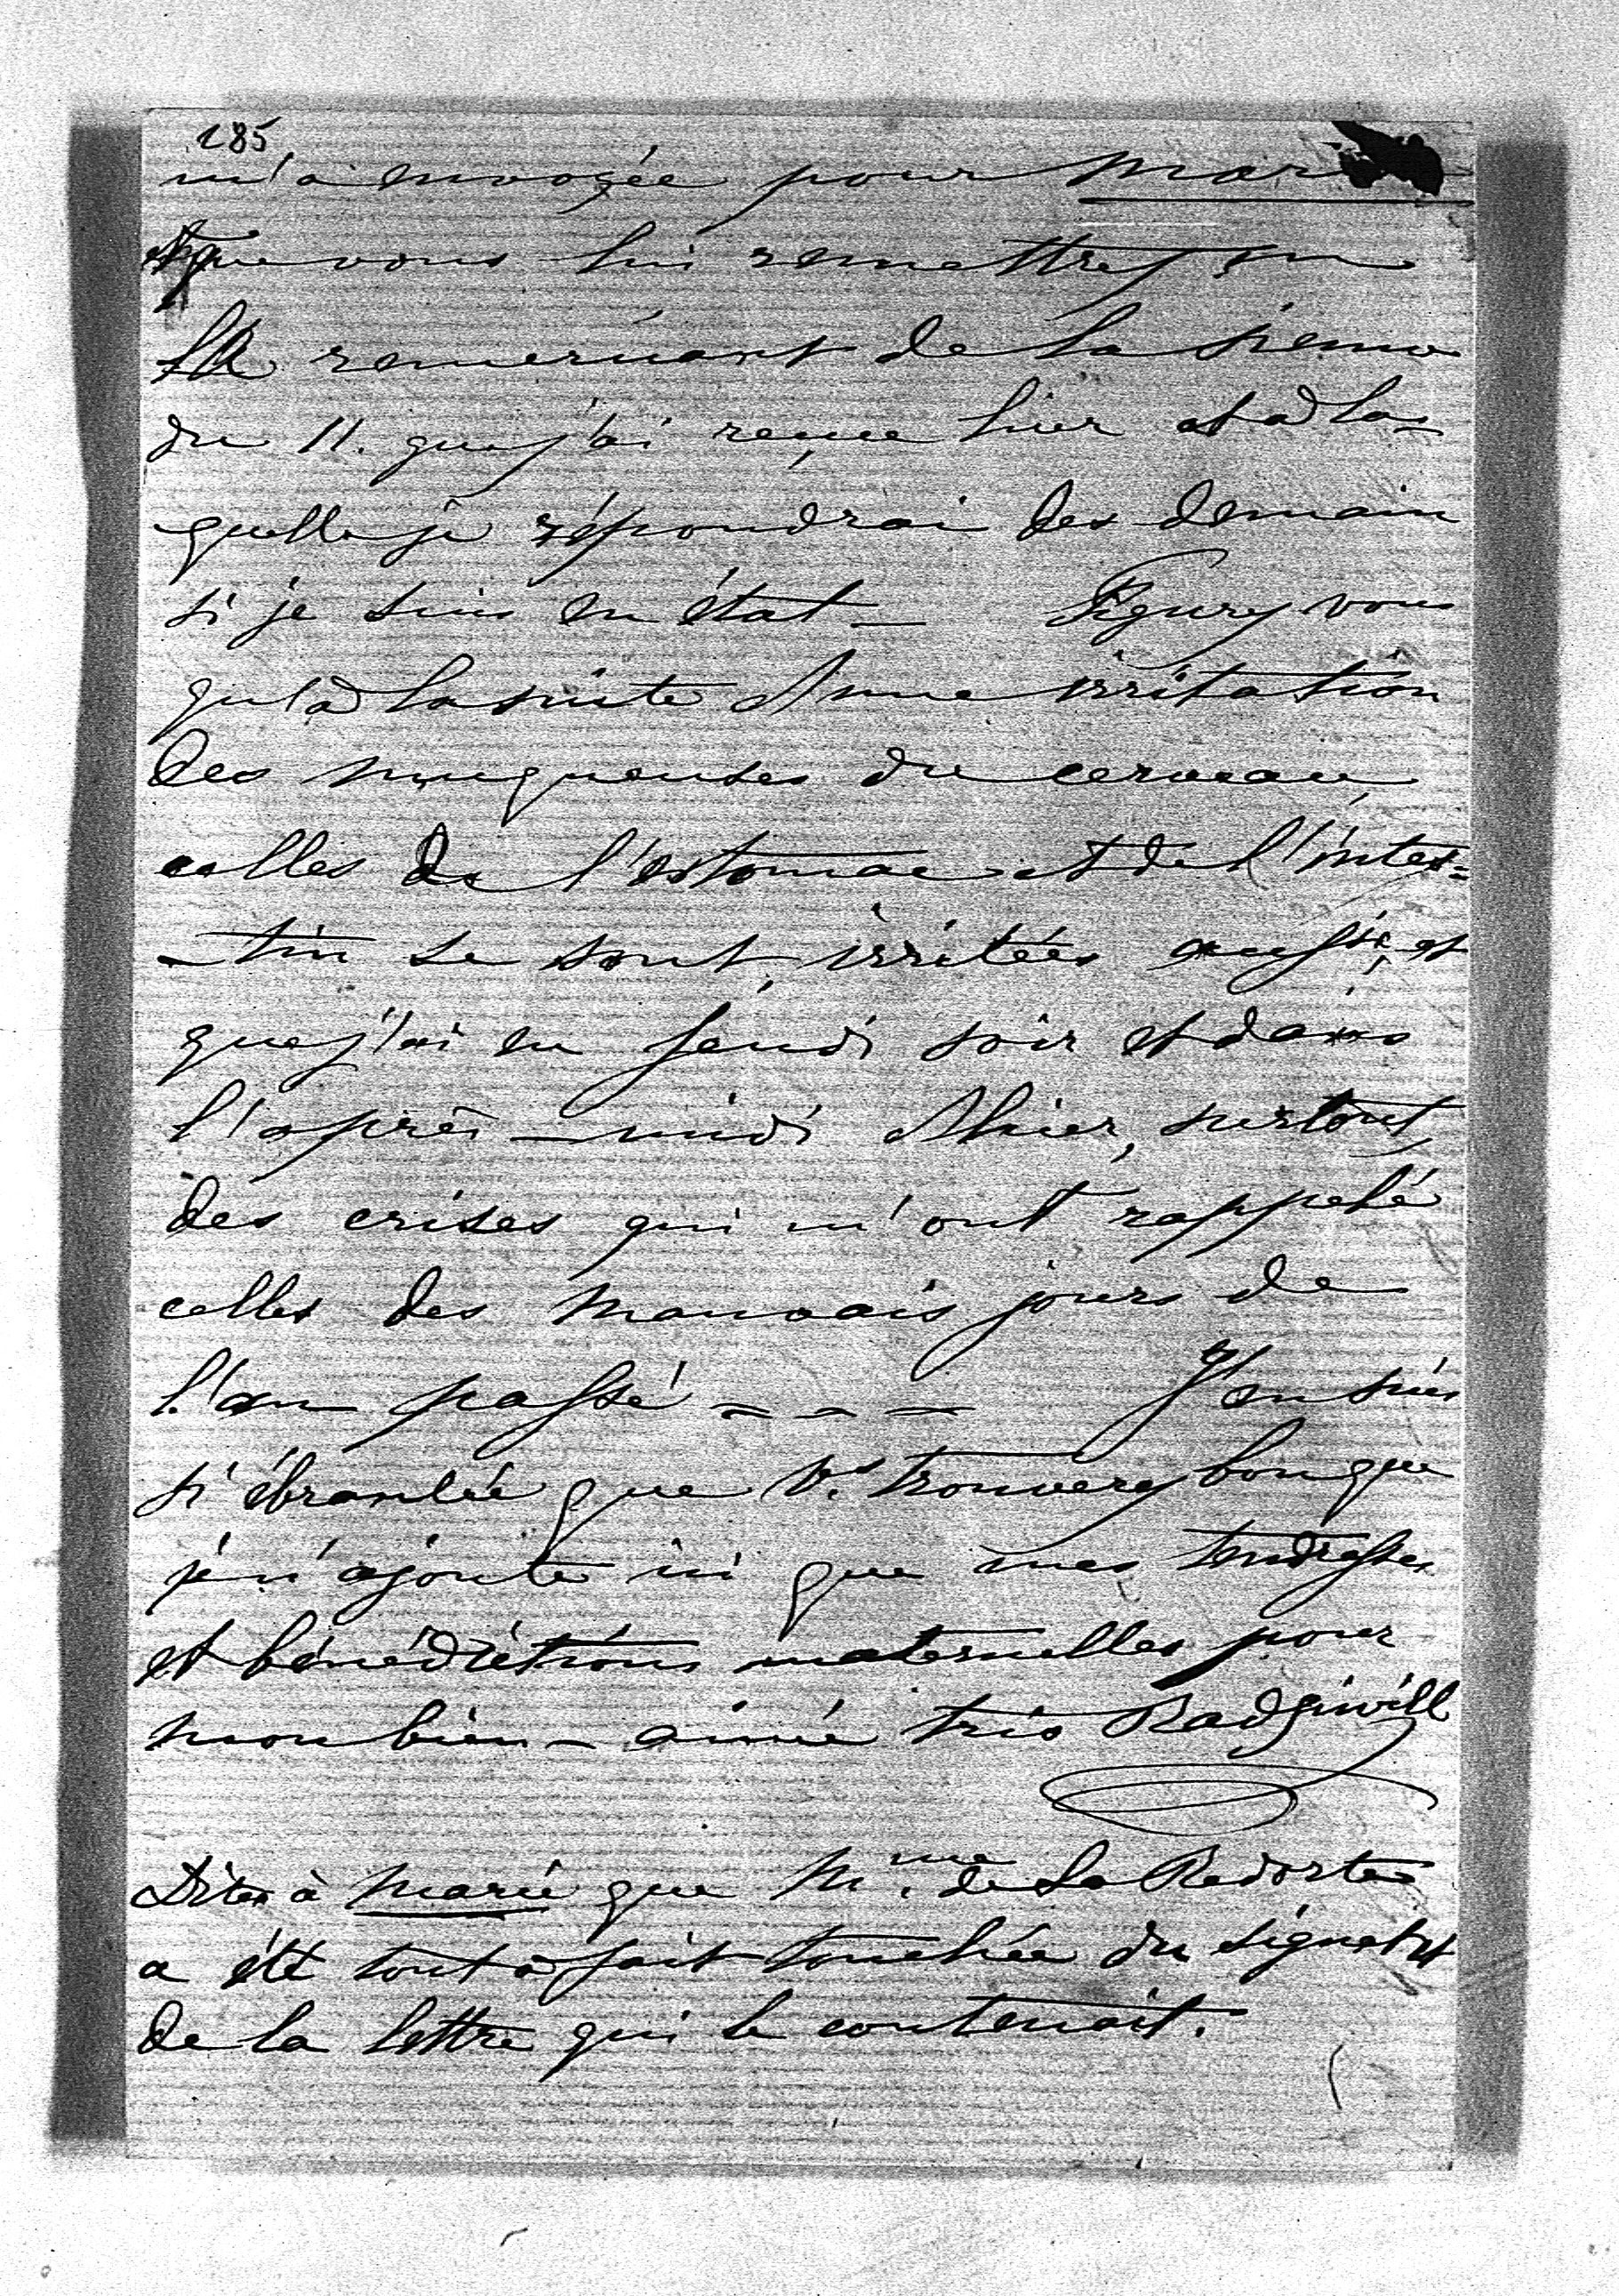 285
m'a envoyée pour Marie
et que vous lui remettrez en
la remerciant de la sienne
du 11. que j'ai reçue hier et à la-
quelle je répondrai dès demain
si je suis en état — Figurez vous
qu'à la suite d'une irritation
des muqueuses du cerveau
celles de l'estomac et de l'intes=
-tin se sont irritées aussi, et
que j'ai eu jeudi soir et dans
l'après-midi d'hier, surtout,
des crises qui m'ont rappelé
celles des mauvais jours de
l'an passé - - - J'en suis
si ébranlée que V.s trouverez bon que
je n'ajoute ici que mes tendresses
et bénédictions maternelles pour
mon bien-aimé trio Radziwill
Dites à Marie que M.me de La Redorte
a été tout à fait touchée du signet et
de la lettre qui le contenait.